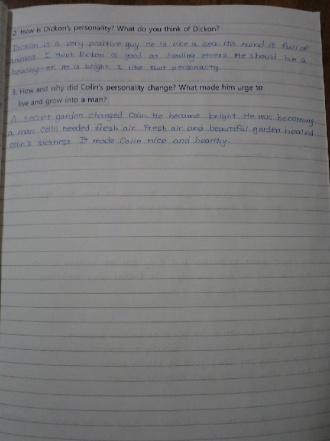 2. How is Dickon's personality? What do you think of Dickon?
Dickon is a very positive guy. He is like a sea. His mind is full of
animal. I think Dickon is good at healing others. He should be a
healing-er. He is bright. I like that personality.
3. How and why did Colin's personality change? What made him urge to
live and grow into a man?
A secret garden changed Colin. He became bright. He was becoming
a man. Colin needed fresh air. Fresh air and beautiful garden healed
Colin's sickness. It made Colin nice and healthy.